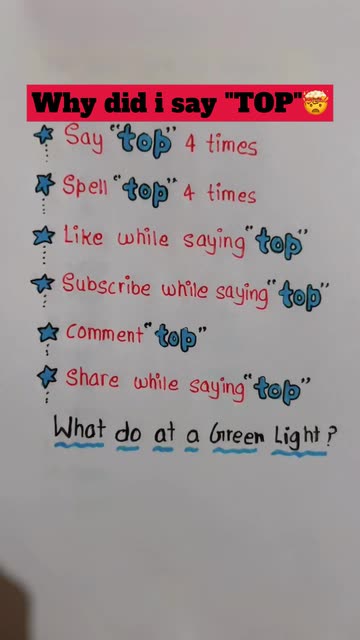 Why did i say "TOP"🤯
Say "top" 4 times
Spell "top" 4 times
Like while saying "top"
Subscribe while saying "top"
Comment "top"
Share while saying "top"
What do at a Green Light?